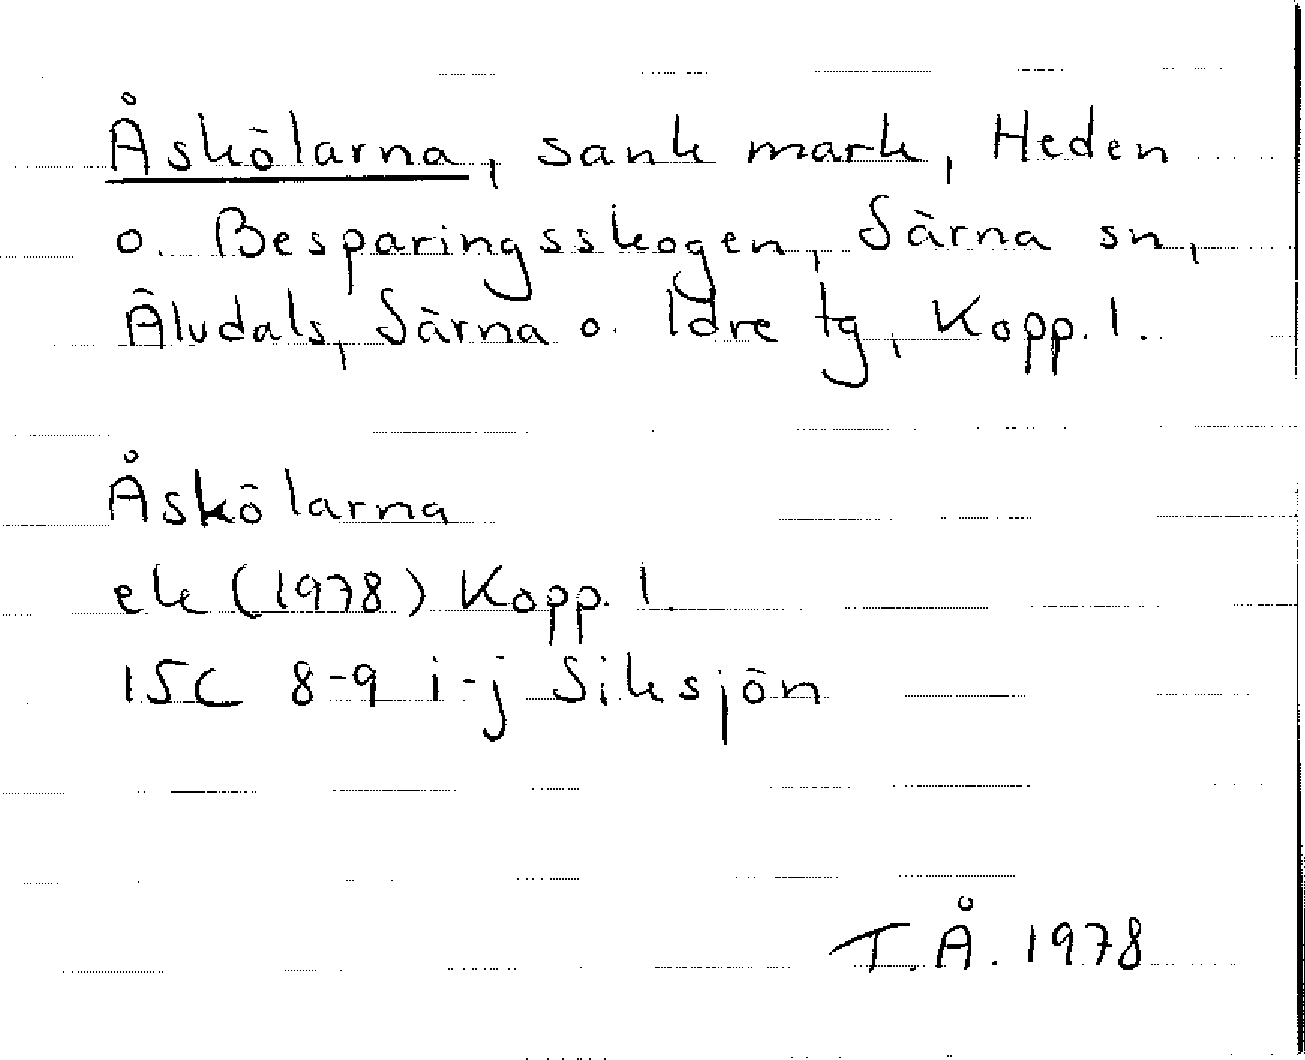 Åskölarna, sank mark, Heden
o. Besparingsskogen, Särna sn,
Älvdals, Särna o. Idre tg, Kopp. l.
Åskölarna
ek (1978) Kopp. l.
15C 8-9 i-j Siksjön
T.Å. 1978